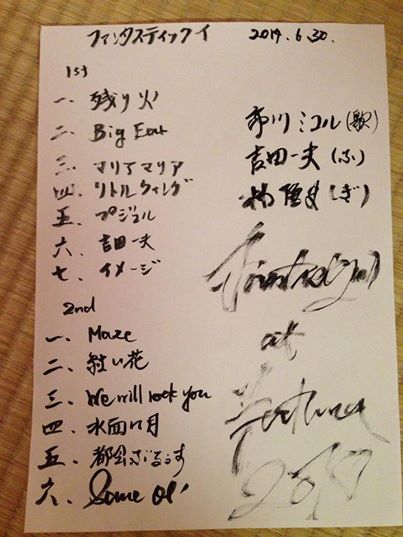 ファンタスティックイ 2014.6.30.
1st
一、残り火
二、Big Eat
三、マリアマリア
四、リトルウィング
五、プジョル
六、吉田一夫
七、イメージ
市川ミコル(歌)
吉田一夫(ふ)
(ぎ)
2nd
一、Maze
二、紅い花
三、We will rock you
四、水面に月
五、都会ぶるうす
六、Some Ol'
at